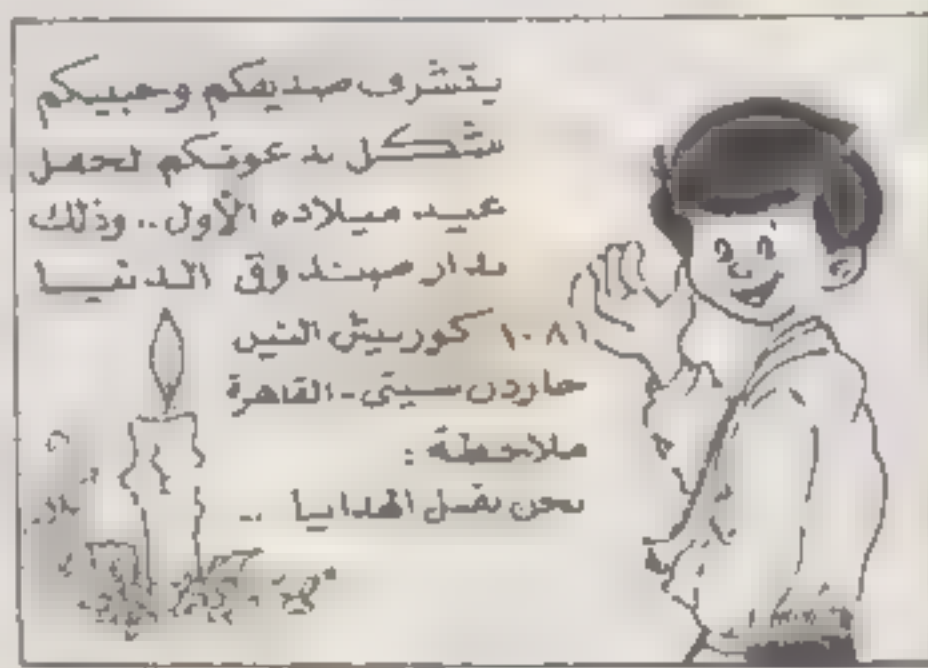 يتشرف صديقكم وحبيبكم
بدعوتكم لحفل
عيد ميلاده الأول.. وذلك
بدار صندوق الدنيا
١٠٨١ كورنيش النيل
جاردن سيتى - القاهرة
ملاحظة :
نحن نقبل الهدايا ..